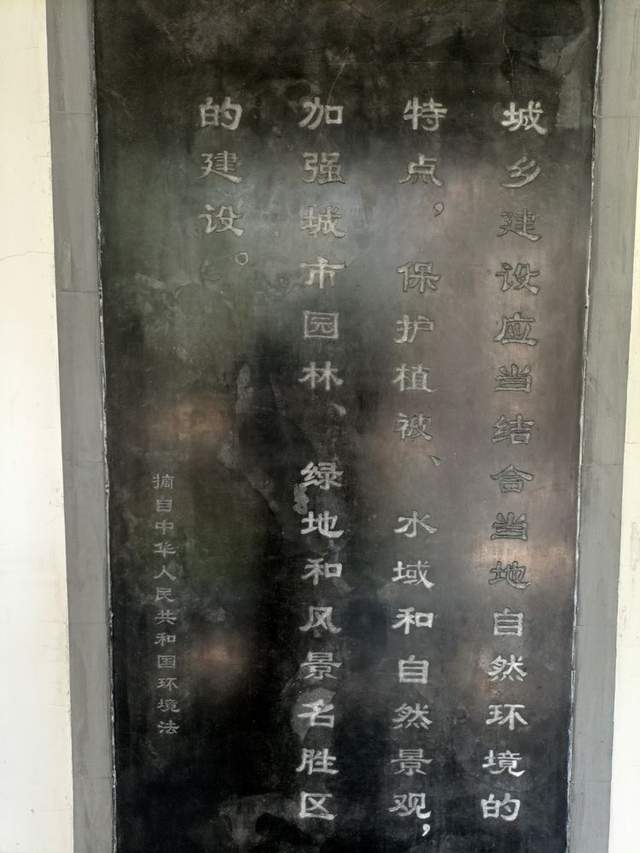 城乡建设应当结合当地自然环境的
特点，保护植被、水域和自然景观，
加强城市园林、绿地和风景名胜区
的建设。
摘自中华人民共和国环境法